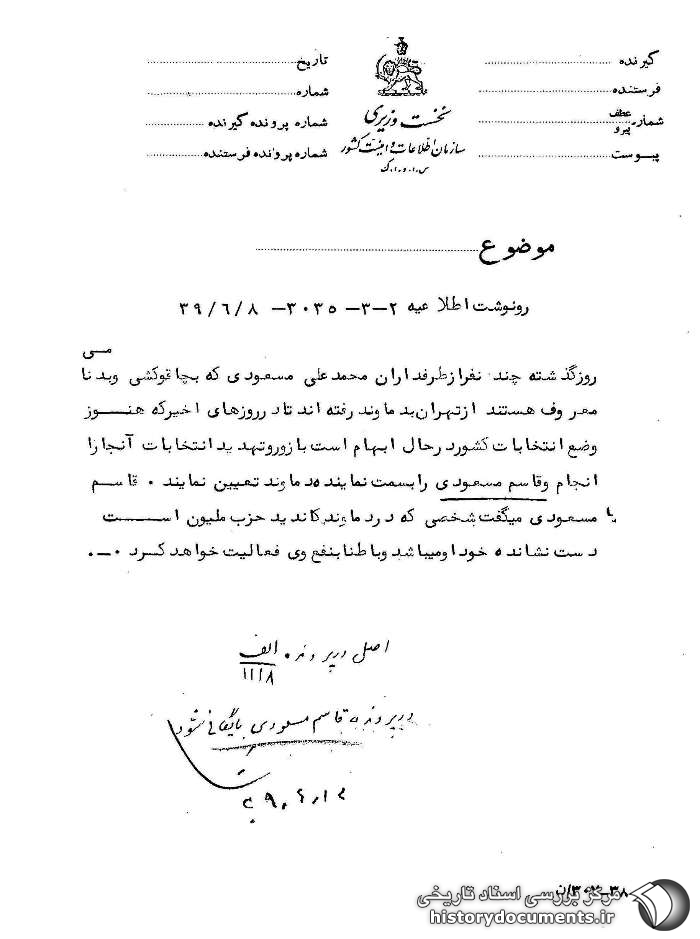 گیرنده
فرستنده
شماره عطف پیرو
پیوست
نخست وزیری
سازمان اطلاعات و امنیت کشور
س.ا.و.ا.ک
تاریخ
شماره
شماره پرونده گیرنده
شماره پرونده فرستنده
موضوع
رونوشت اطلاعیه ۲-۳-۳۰۳۵ - ۳۹/۶/۸
روزگذشته چند نفرازطرفداران محمدعلی مسعودی که بچاقوکشی وبدنامی
معروف هستند ازتهران بدماوند رفته اند تادرروزهای اخیرکه هنوز
وضع انتخابات کشوردرحال ابهام است بازوروتهدید انتخابات آنجارا
انجام وقاسم مسعودی رابسمت نماینده دماوند تعیین نمایند . قاسم
مسعودی میگفت شخصی که دردماوند کاندید حزب ملیون است
دست نشانده خود اومیباشد وباطنا بنفع وی فعالیت خواهد کرد .-.
اصل در پرونده الف
۱۱۱۸
در پرونده قاسم مسعودی بایگانی شود
مرکز بررسی اسناد تاریخی
historydocuments.ir